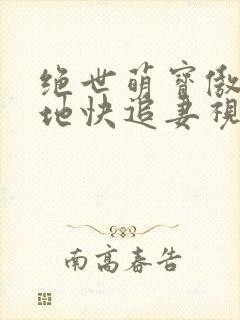 绝世萌寶傲
地快追妻視
南高春告